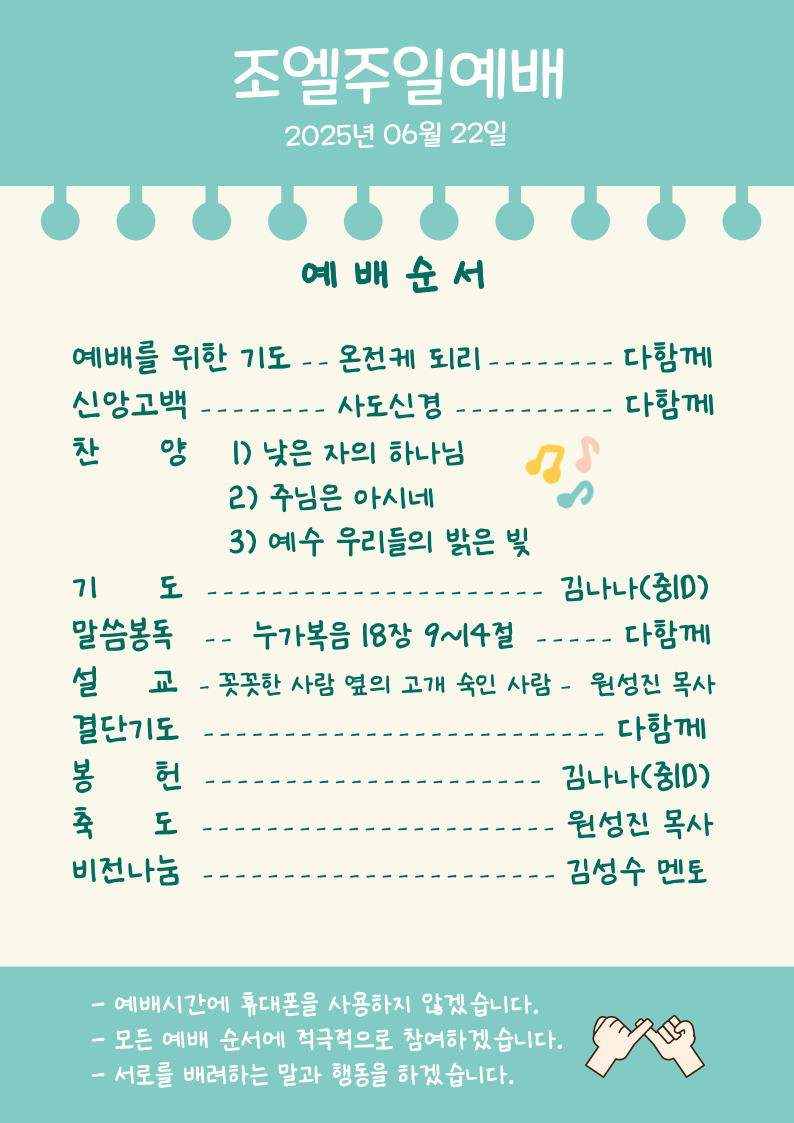 조엘주일예배
2025년 06월 22일
예 배 순 서
예배를 위한 기도 -- 온전케 되리 -------- 다함께
신앙고백 -------- 사도신경 ---------- 다함께
찬 양 1) 낮은 자의 하나님
2) 주님은 아시네
3) 예수 우리들의 밝은 빛
기 도 --------------------- 김나나(중1D)
말씀봉독 -- 누가복음 18장 9~14절 ----- 다함께
설 교 - 꼿꼿한 사람 옆의 고개 숙인 사람 - 원성진 목사
결단기도 ------------------------- 다함께
봉 헌 --------------------- 김나나(중1D)
축 도 ---------------------- 원성진 목사
비전나눔 ---------------------- 김성수 멘토
- 예배시간에 휴대폰을 사용하지 않겠습니다.
- 모든 예배 순서에 적극적으로 참여하겠습니다.
- 서로를 배려하는 말과 행동을 하겠습니다.